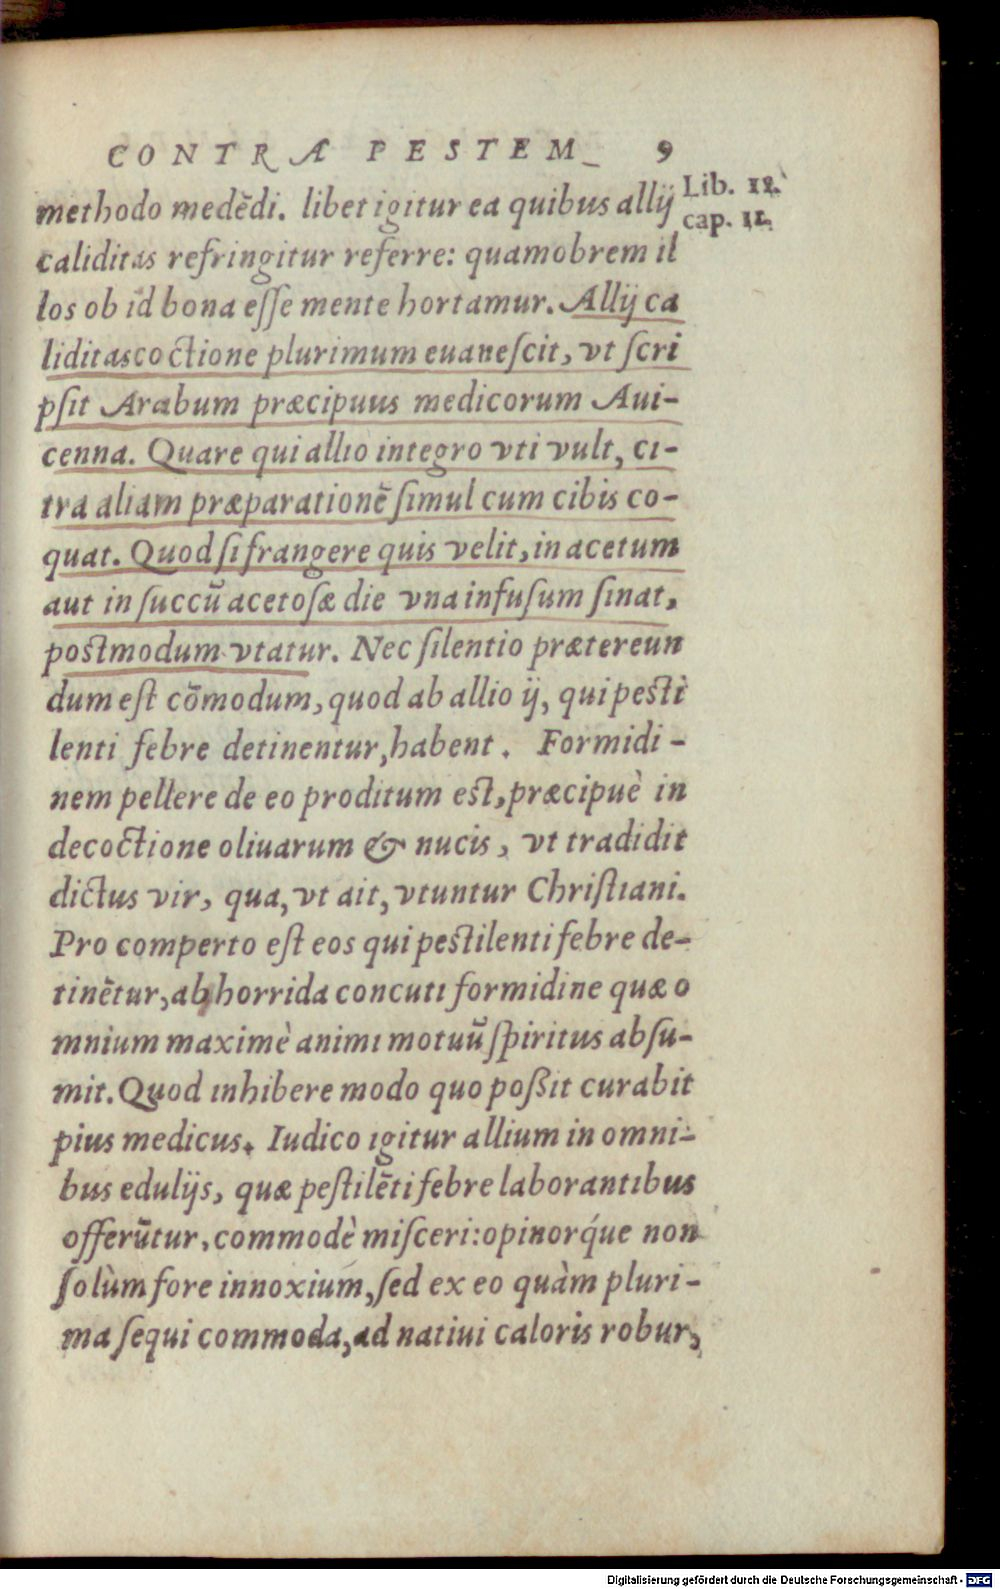 CONTRA PESTEM 9
methodo medēdi. libet igitur ea quibus allij
Lib. 12.
cap. 11.
caliditas refringitur referre: quamobrem il
los ob id bona esse mente hortamur. Allij ca
liditas coctione plurimum euanescit, vt scri
psit Arabum præcipuus medicorum Aui-
cenna. Quare qui allio integro vti vult, ci-
tra aliam præparationē simul cum cibis co-
quat. Quod si frangere quis velit, in acetum
aut in succū acetosæ die vna infusum sinat,
postmodum vtatur. Nec silentio prætereun
dum est cōmodum, quod ab allio ij, qui pesti
lenti febre detinentur, habent. Formidi-
nem pellere de eo proditum est, præcipuè in
decoctione oliuarum & nucis, vt tradidit
dictus vir, qua, vt ait, vtuntur Christiani.
Pro comperto est eos qui pestilenti febre de-
tinētur, ab horrida concuti formidine quæ o
mnium maximè animi motuū spiritus absu-
mit. Quod inhibere modo quo poßit curabit
pius medicus. Iudico igitur allium in omni-
bus edulijs, quæ pestilēti febre laborantibus
offerūtur, commodè misceri: opinorq́ue non
solùm fore innoxium, sed ex eo quàm pluri-
ma sequi commoda, ad natiui caloris robur,
Digitalisierung gefördert durch die Deutsche Forschungsgemeinschaft - DFG